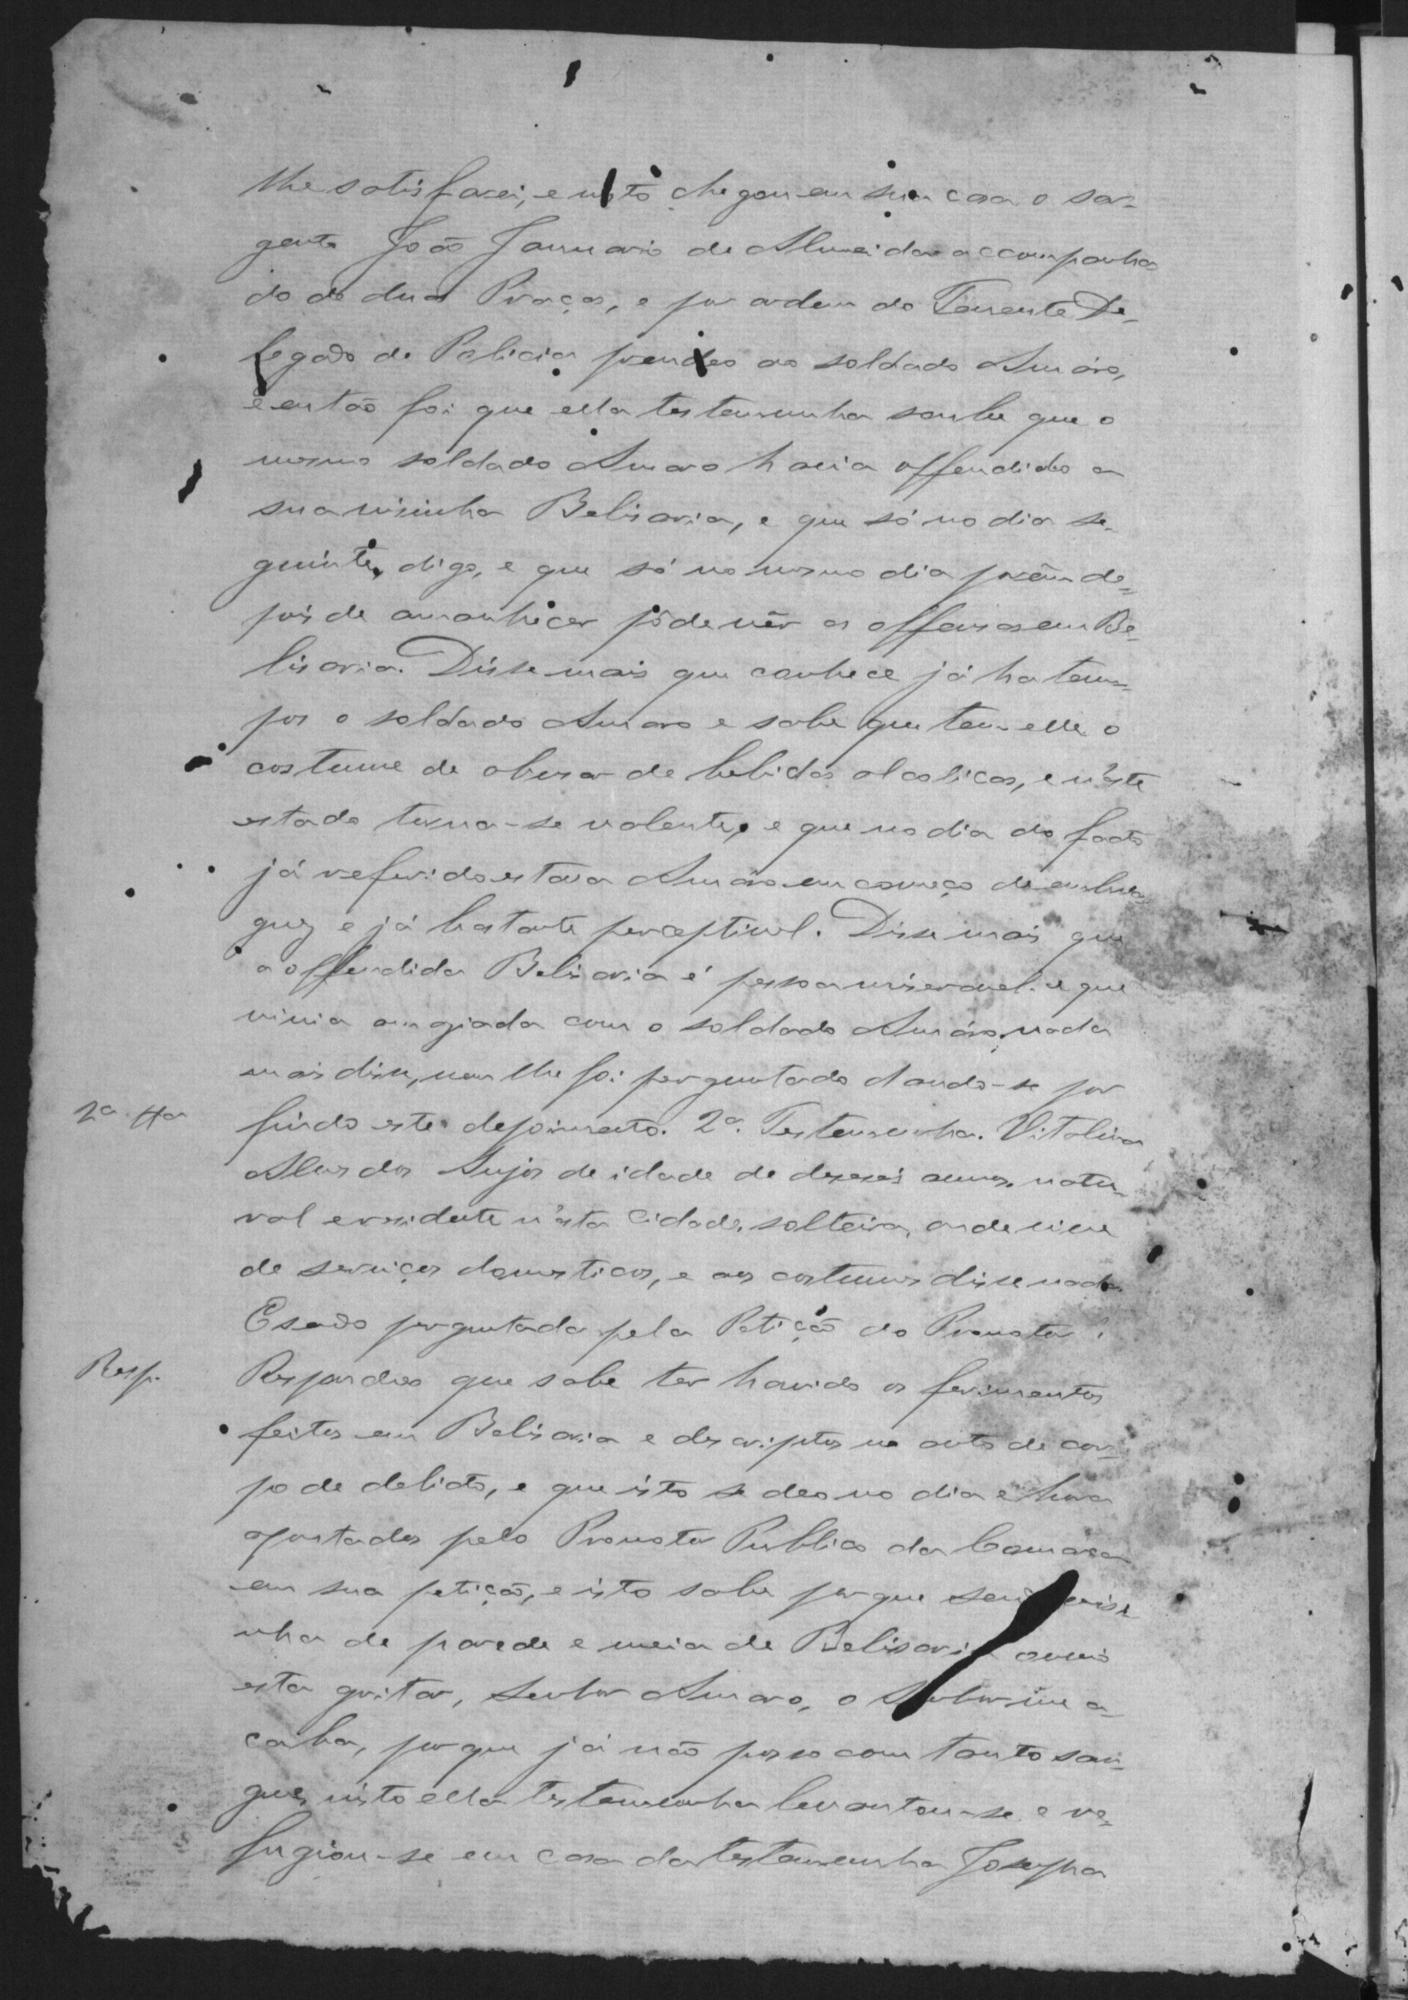 lhe satisfazei, e nisto chegou em sua casa o sar-
gento João Januario de Almeida accompanha
do de duas Praças, e por ordem do Tenente De-
legado de Policia prendeo ao soldado Amáro,
e então foi que ella testemunha soube que o
mesmo soldado Amaro havia offendido a
sua visinha Belisaria, e que só no dia se-
guinte, digo, e que só no mesmo dia porêm de-
pois de amanhecer pôde vêr as offensas em Be-
lisaria. Disse mais que conhece já ha tem-
pos o soldado Amaro e sabe que tem elle o
costume de abusar de bebidas alcolicas, e n'este
estado torna-se valente, e que no dia do facto
já referido estava Amáro em começo de embria
guez e já bastante perceptivel. Disse mais que
a offendida Belisaria é pessoa miseravel e que
vivia amaziada com o soldado Amáro, nada
mais disse, nem lhe foi perguntado dando-se por
2ª Tta findo este depoimento. 2ª. Testemunha. Vitalina
Alves dos Anjos de idade de deseseis annos, natu-
ral e residente n'esta Cidade, solteira, onde vive
de serviços domesticos, e aos costumes disse nada.
E sendo perguntada pela Petição do Promotor.
Resp. Respondeo que sabe ter havido os ferimentos
feitos em Belisaria e descriptos no auto de cor-
po de delicto, e que isto se deo no dia e hora
apontados pelo Promotor Publico da Comarca
em sua petição, e isto sabe porque sendo visi-
nha de parede e meia de Belisaria ouvio
esta gritar, Senhor Amaro, o Senhor me a-
caba, porque já não posso com tanto san-
gue, nisto ella testemunha levantou-se e re-
fugiou-se em casa da testemunha Josepha